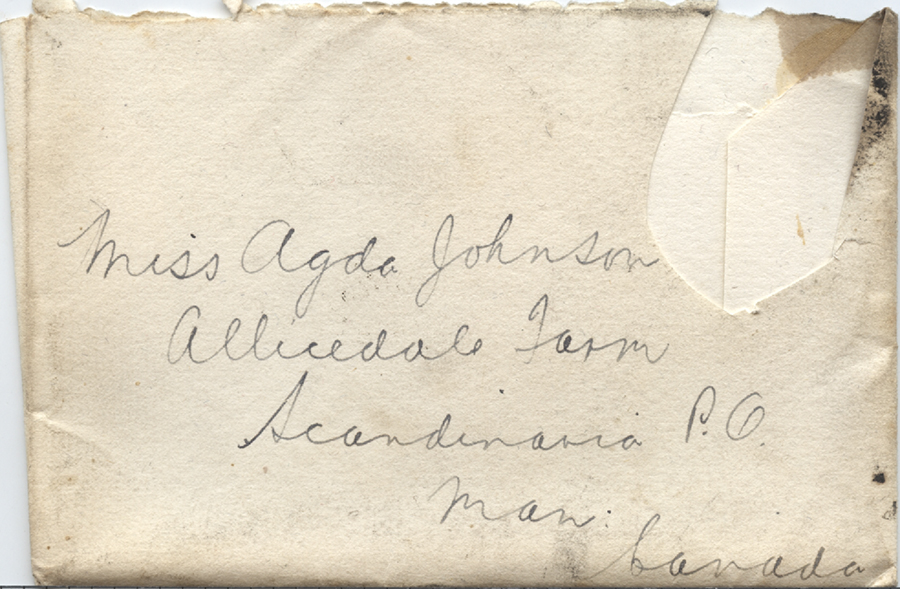 Miss Agda Johnson
Allicedale Farm
Scandinavia P.O.
Man:
Canada